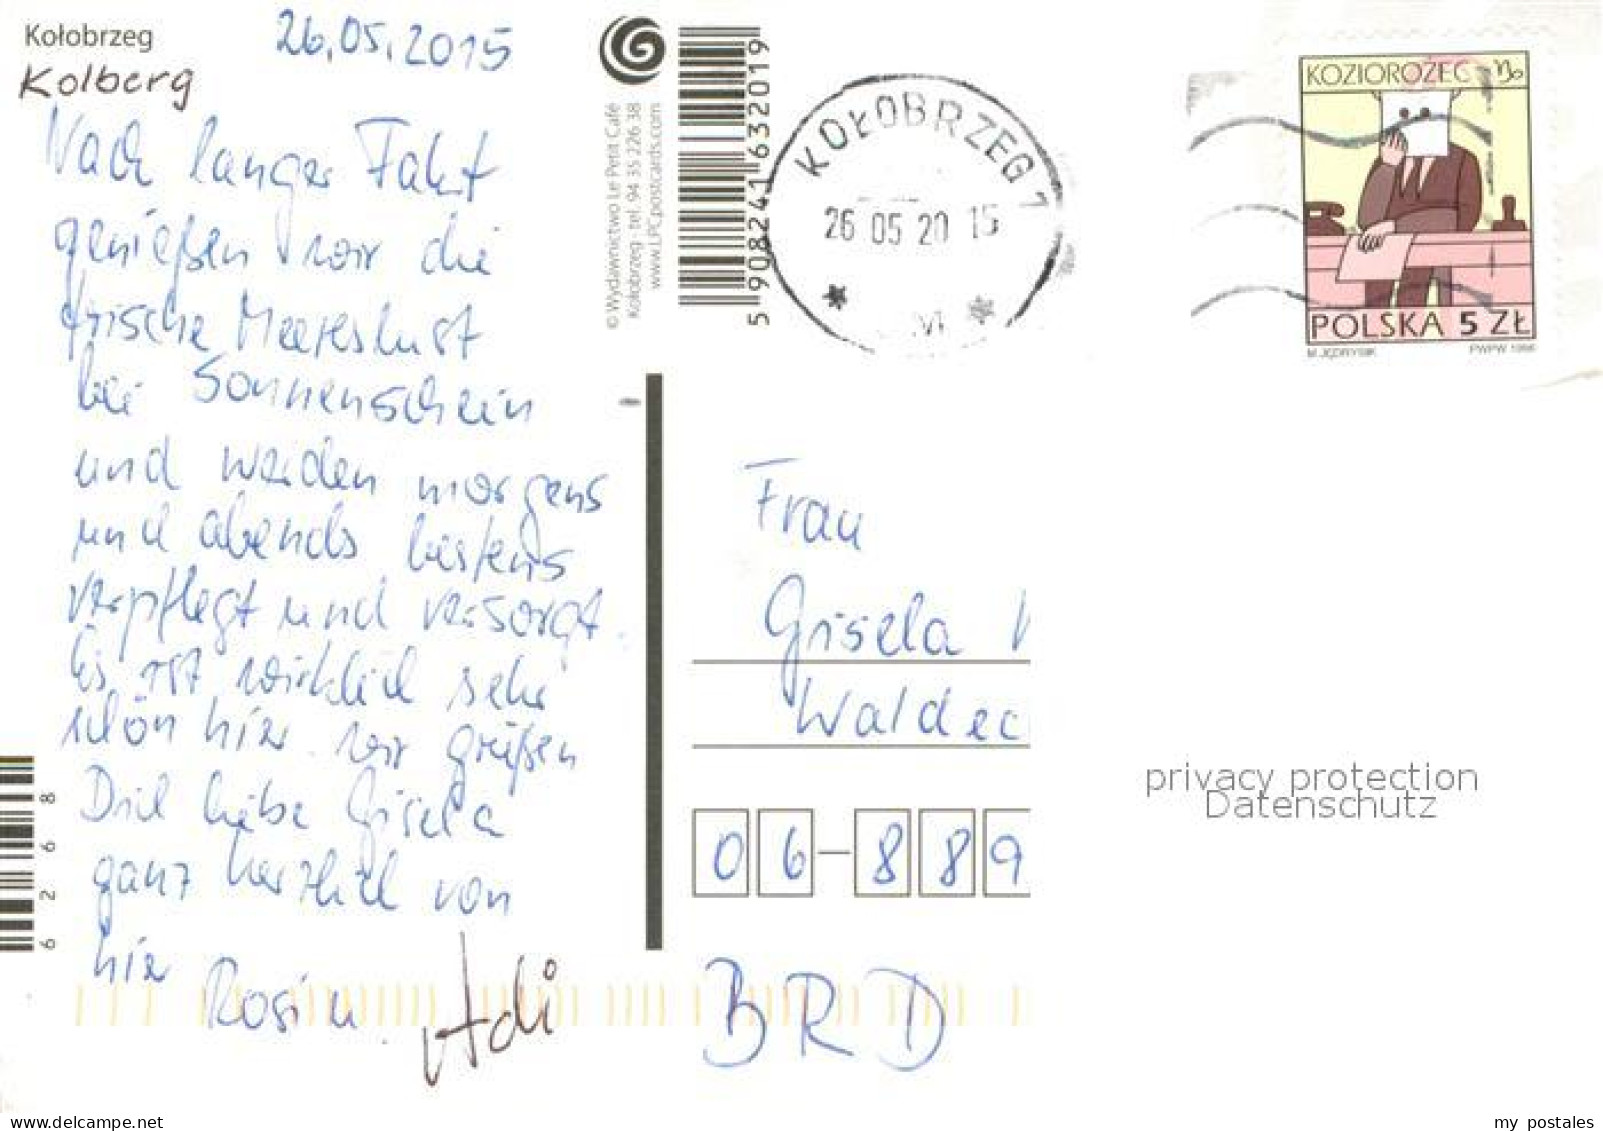 Kołobrzeg
Kolberg
26.05.2015
Nach langer Fahrt
genießen wir die
frische Meeresluft
bei Sonnenschein
und werden morgens
und abends bestens
verpflegt und versorgt.
Es ist wirklich sehr
schön hier. Wir grüßen
Dich liebe Gisela
ganz herzlich von
hier
Rosi u.
Adi
© Wydawnictwo Le Petit Café
Kołobrzeg · tel. 94 35 226 38
www.LPCpostcards.com
5 908241 632019
KOŁOBRZEG 1
26 05 20 15
KOZIOROŻEC
POLSKA 5 ZŁ
M. JĘDRYSIK
PWPW 1996
Frau
Gisela
Waldec
06-889
BRD
6 2 6 8
privacy protection
Datenschutz
my postales